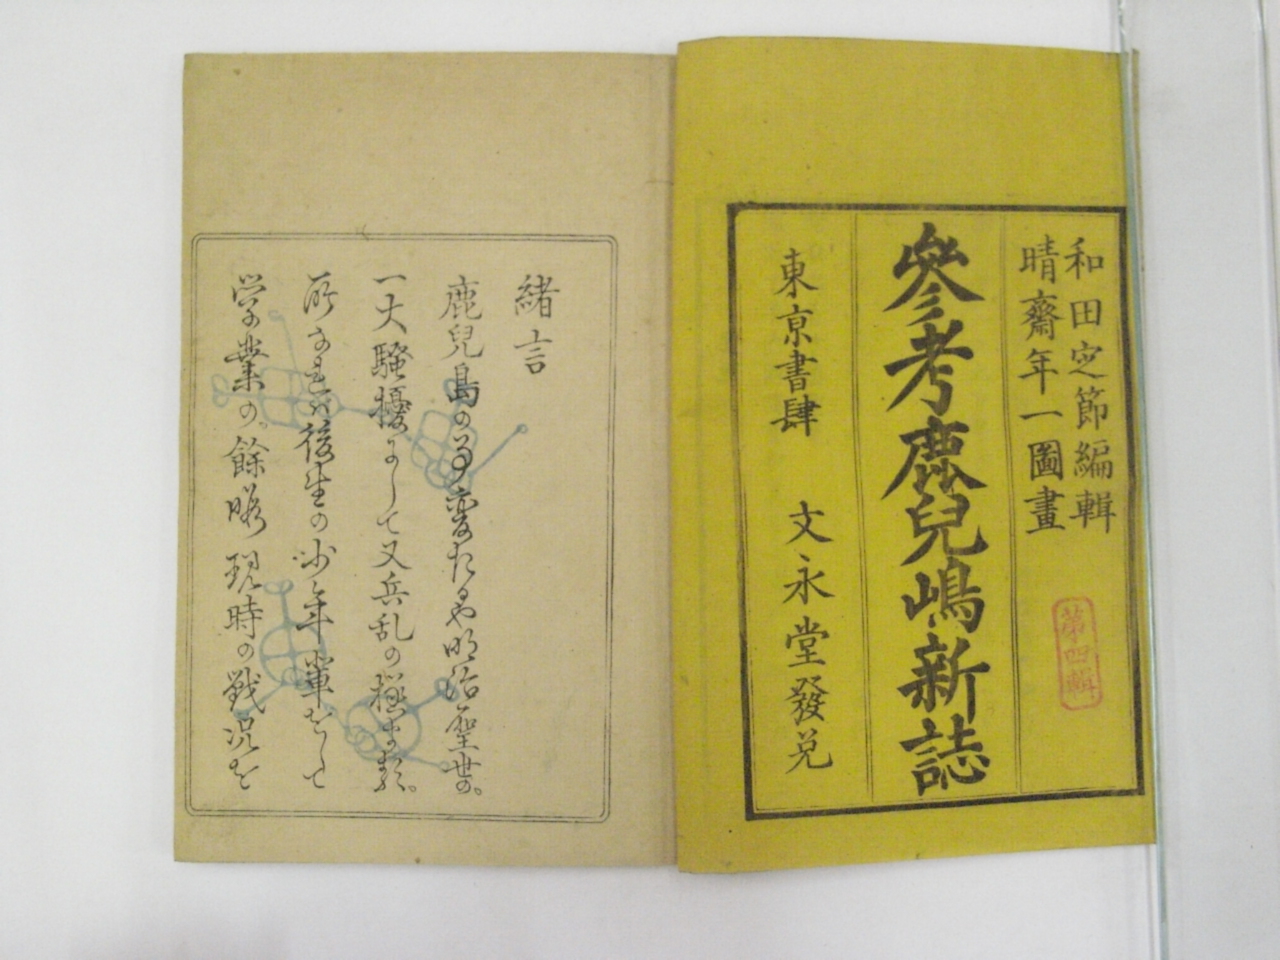 和田定節編輯
晴齋年一圖畫
第四輯
參考鹿兒嶋新誌
東京書肆 文永堂發兌
緒言
鹿兒島の事変たるや明治聖世の。
一大騒擾にして又兵乱の極まる。
所なれバ後生の少年輩をして
学業の。餘暇現時の戦况を